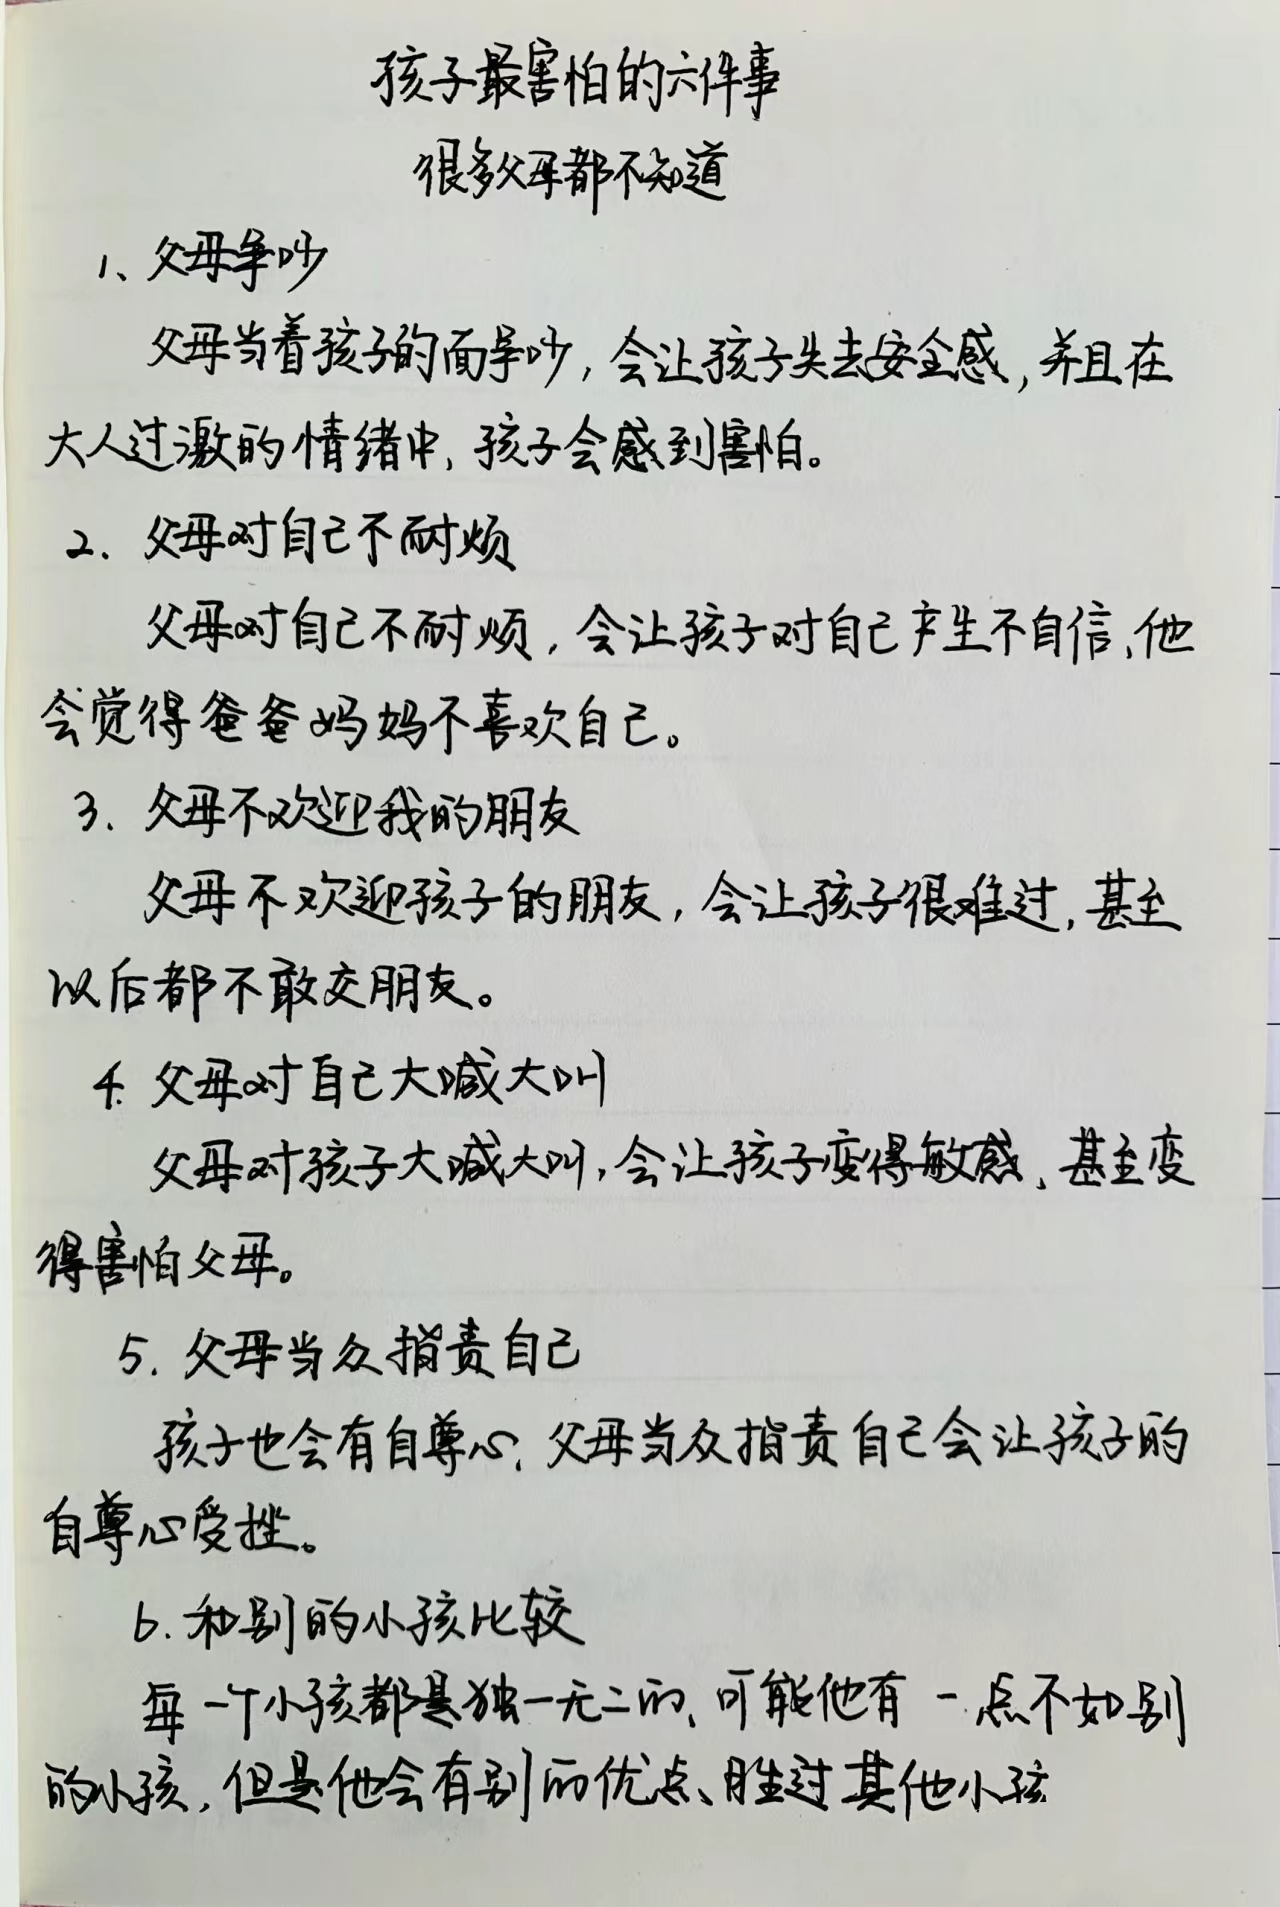 孩子最害怕的六件事
很多父母都不知道
1、父母争吵
父母当着孩子的面争吵，会让孩子失去安全感，并且在
大人过激的情绪中，孩子会感到害怕。
2. 父母对自己不耐烦
父母对自己不耐烦，会让孩子对自己产生不自信、他
会觉得爸爸妈妈不喜欢自己。
3. 父母不欢迎我的朋友
父母不欢迎孩子的朋友，会让孩子很难过，甚至
以后都不敢交朋友。
4. 父母对自己大喊大叫
父母对孩子大喊大叫，会让孩子变得敏感、甚至变
得害怕父母。
5. 父母当众指责自己
孩子也会有自尊心，父母当众指责自己会让孩子的
自尊心受挫。
6. 和别的小孩比较
每一个小孩都是独一无二的、可能他有一点不如别
的小孩，但是他会有别的优点、胜过其他小孩